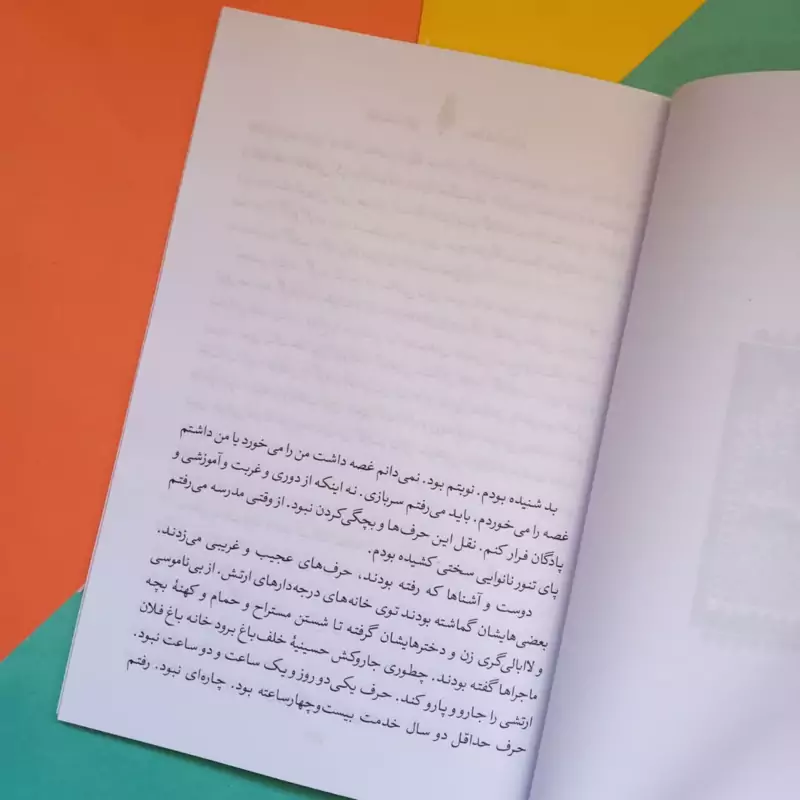 بد شنیده بودم. نوبتم بود. نمی‌دانم غصه داشت من را می‌خورد یا من داشتم
غصه را می‌خوردم. باید می‌رفتم سربازی. نه اینکه از دوری و غربت و آموزشی و
پادگان فرار کنم. نقل این حرف‌ها و بچگی‌کردن نبود. از وقتی مدرسه می‌رفتم
پای تنور نانوایی سختی کشیده بودم.
دوست و آشناها که رفته بودند، حرف‌های عجیب و غریبی می‌زدند.
بعضی‌هایشان گماشته بودند توی خانه‌های درجه‌دارهای ارتش. از بی‌ناموسی
و لاابالی‌گری زن و دخترهایشان گرفته تا شستن مستراح و حمام و کهنهٔ بچه
ماجراها گفته بودند. چطوری جاروکش حسینیهٔ خلف‌باغ برود خانه باغ فلان
ارتشی را جارو و پارو کند. حرف یکی‌دو روز و یک ساعت و دو ساعت نبود.
حرف حداقل دو سال خدمت بیست‌وچهارساعته بود. چاره‌ای نبود. رفتم